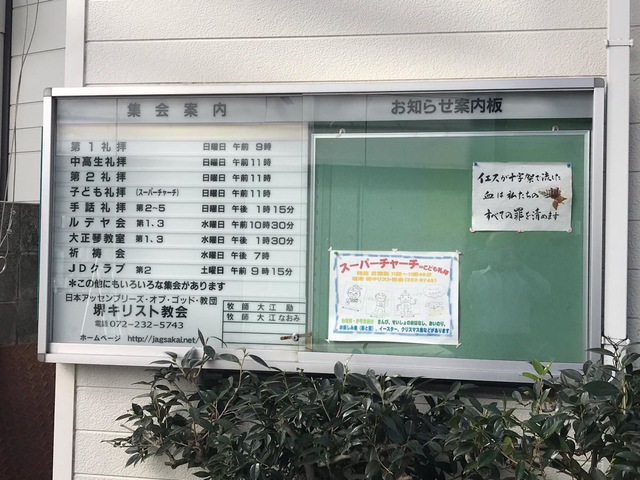 集会案内
第1礼拝 日曜日 午前 9時
中高生礼拝 日曜日 午前11時
第2礼拝 日曜日 午前11時
子ども礼拝 (スーパーチャーチ) 日曜日 午前11時
手話礼拝 第2~5 日曜日 午後 1時15分
ルデヤ会 第1.3 水曜日 午前10時30分
大正琴教室 第1.3 水曜日 午後 1時30分
祈祷会 水曜日 午後 7時
JDクラブ 第2 土曜日 午前 9時15分
*この他にもいろいろな集会があります
日本アッセンブリーズ・オブ・ゴッド・教団
堺キリスト教会
電話 072-232-5743
牧師 大江 励
牧師 大江なおみ
ホームページ http://jagsakai.net/
お知らせ案内板
イエスが十字架で流した
血は私たちの
すべての罪を清めます
スーパーチャーチ~こども礼拝
さんび、せいしょのおはなし、おいのり、
イースター、クリスマス会などがあります